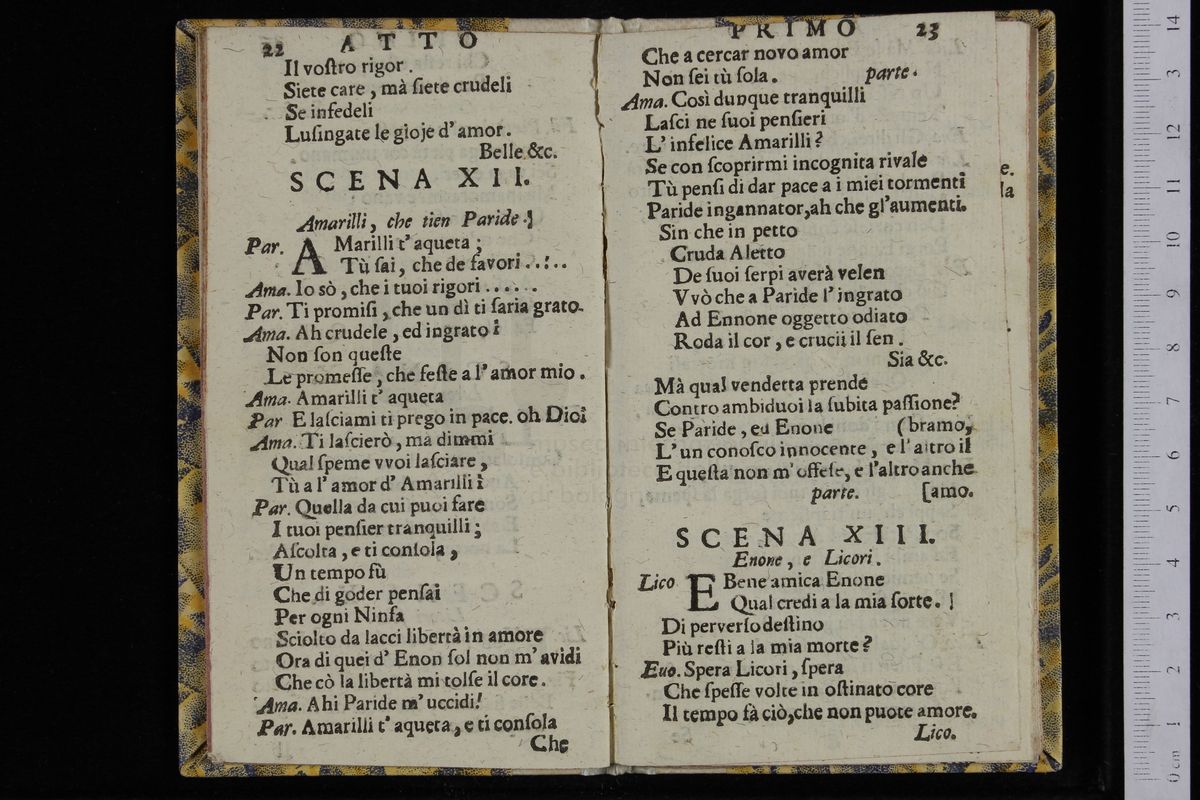 22 ATTO
Il voſtro rigor.
Siete care, mà ſiete crudeli
Se infedeli
Luſingate le gioje d'amor.
Belle &c.
SCENA XII.
Amarilli, che tien Paride.
Par. AMarilli t'aqueta;
Tù ſai, che de favori . . : . .
Ama. Io sò, che i tuoi rigori . . . . . .
Par. Ti promiſi, che un dì ti ſaria grato.
Ama. Ah crudele, ed ingrato!
Non ſon queſte
Le promeſſe, che feſte a l'amor mio.
Ama. Amarilli t'aqueta
Par E laſciami ti prego in pace. oh Dio!
Ama. Ti laſcierò, ma dimmi
Qual ſpeme vvoi laſciare,
Tù a l'amor d'Amarilli!
Par. Quella da cui puoi fare
I tuoi penſier tranquilli;
Aſcolta, e ti conſola,
Un tempo fù
Che di goder penſai
Per ogni Ninfa
Sciolto da lacci libertà in amore
Ora di quei d'Enon ſol non m'avidi
Che cò la libertà mi tolſe il core.
Ama. Ahi Paride m'uccidi!
Par. Amarilli t'aqueta, e ti conſola
Che
PRIMO 23
Che a cercar novo amor
Non ſei tù ſola. parte.
Ama. Così dunque tranquilli
Laſci ne ſuoi penſieri
L'infelice Amarilli?
Se con ſcoprirmi incognita rivale
Tù penſi di dar pace a i miei tormenti
Paride ingannator, ah che gl'aumenti.
Sin che in petto
Cruda Aletto
De ſuoi ſerpi averà velen
Vvò che a Paride l'ingrato
Ad Ennone oggetto odiato
Roda il cor, e crucii il ſen.
Sia &c.
Mà qual vendetta prende
Contro ambiduoi la ſubita paſſione?
Se Paride, ed Enone (bramo,
L'un conoſco innocente, e l'altro il
E queſta non m'offeſe, e l'altro anche
parte. [amo.
SCENA XIII.
Enone, e Licori.
Lico E Bene amica Enone
Qual credi a la mia ſorte.
Di perverſo deſtino
Più reſti a la mia morte?
Euo. Spera Licori, ſpera
Che ſpeſſe volte in oſtinato core
Il tempo fà ciò, che non puote amore.
Lico.